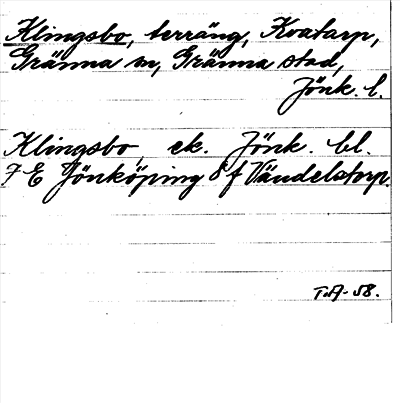 Klingsbo, terräng, Kvatarp,
Gränna m, Gränna stad,
Jönk. l.
Klingsbo, ek. Jönk. bl.
7 E Jönköping 8 f Vändelstorp.
T.A-58.